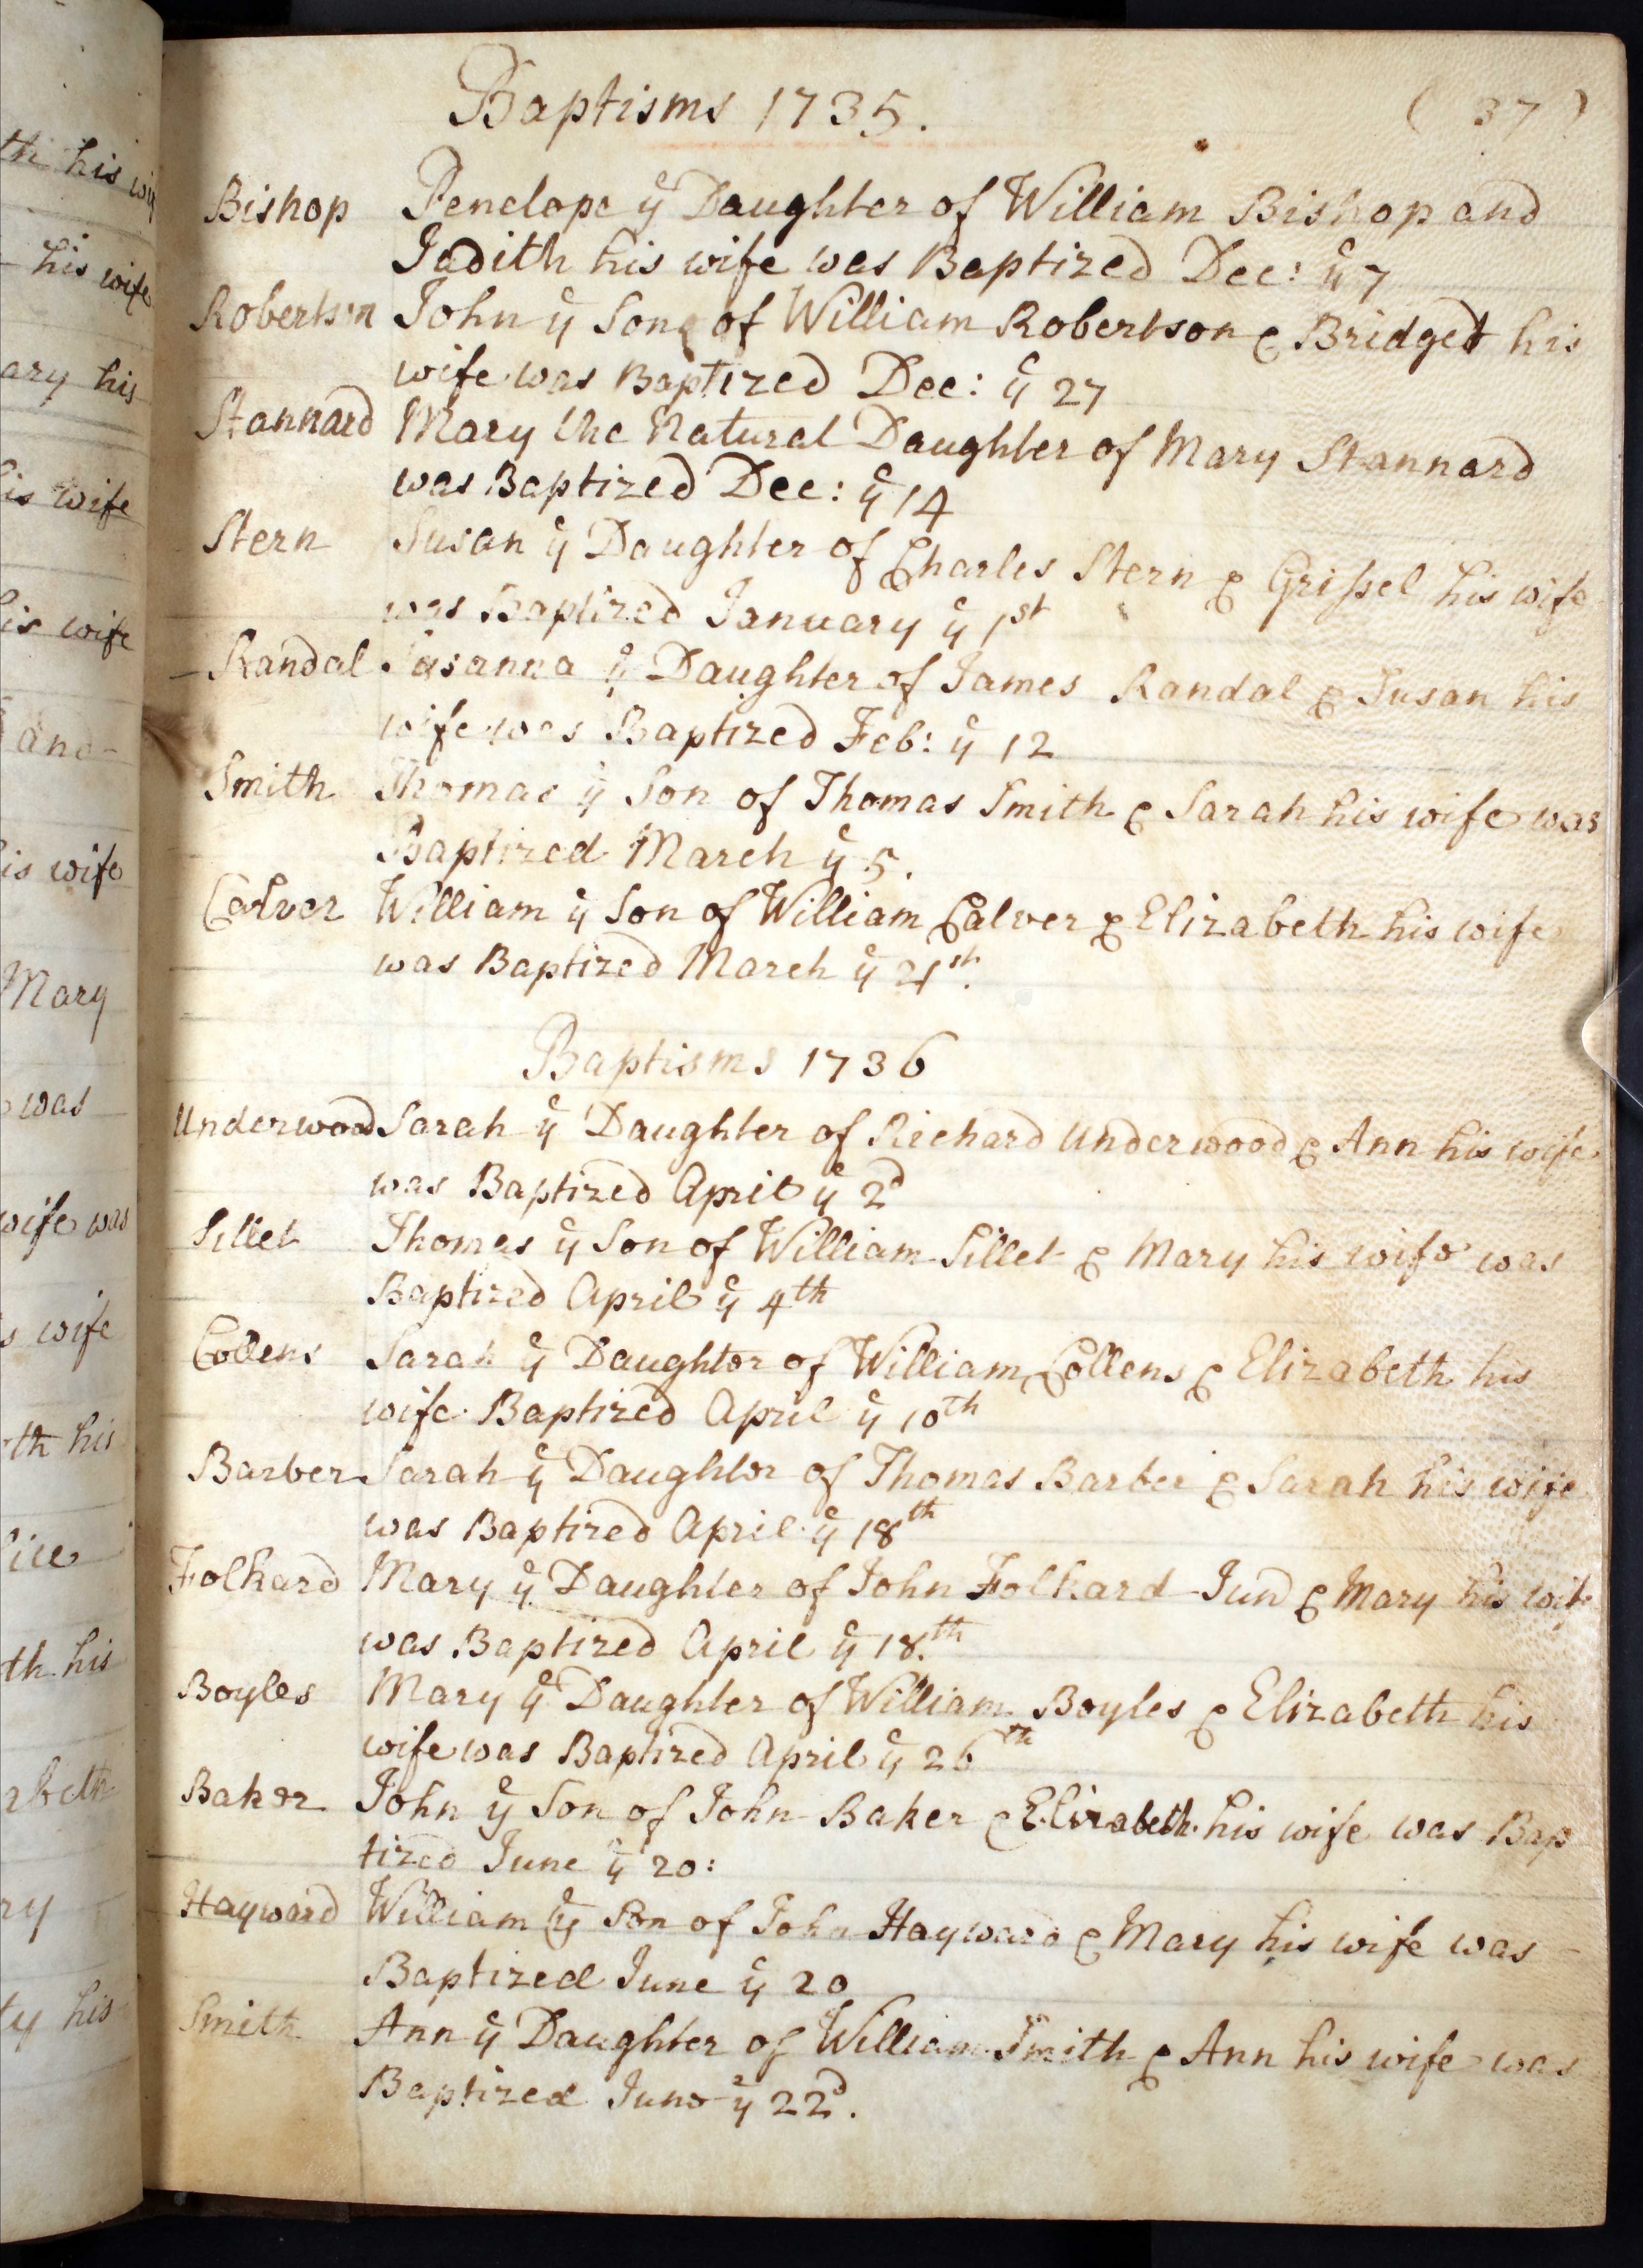 th his wif
his wife
ary his
his wife
his wife
and
his wife
Mary
was
wife was
s wife
th his
lice
th his
abeth
ry
ty his
Baptisms 1735.
( 37 )
Bishop Penelope yᵉ Daughter of William Bishop and
Judith his wife was Baptized Dec: yᵉ 7
Robertson John yᵉ Son of William Robertson & Bridget his
wife was Baptized Dec: yᵉ 27
Stannard Mary the Natural Daughter of Mary Stannard
was Baptized Dec: yᵉ 14
Stern Susan yᵉ Daughter of Charles Stern & Grissel his wife
was Baptized January yᵉ 1st
Randal Susanna yᵉ Daughter of James Randal & Susan his
wife was Baptized Feb: yᵉ 12
Smith Thomas yᵉ Son of Thomas Smith & Sarah his wife was
Baptized March yᵉ 5.
Calver William yᵉ Son of William Calver & Elizabeth his wife
was Baptized March yᵉ 21st.
Baptisms 1736
Underwood Sarah yᵉ Daughter of Richard Underwood & Ann his wife
was Baptized April yᵉ 2d
Sillet Thomas yᵉ Son of William Sillet & Mary his wife was
Baptized April yᵉ 4th
Collens Sarah yᵉ Daughter of William Collens & Elizabeth his
wife Baptized April yᵉ 10th
Barber Sarah yᵉ Daughter of Thomas Barber & Sarah his wife
was Baptized April yᵉ 18th
Folkard Mary yᵉ Daughter of John Folkard Jun & Mary his wife
was Baptized April yᵉ 18.th
Boyles Mary yᵉ Daughter of William Boyles & Elizabeth his
wife was Baptized April yᵉ 26th
Baker John yᵉ Son of John Baker & Elizabeth his wife was Bap
tized June yᵉ 20:
Hayward William yᵉ Son of John Hayward & Mary his wife was
Baptized June yᵉ 20
Smith Ann yᵉ Daughter of William Smith & Ann his wife was
Baptized June yᵉ 22d.